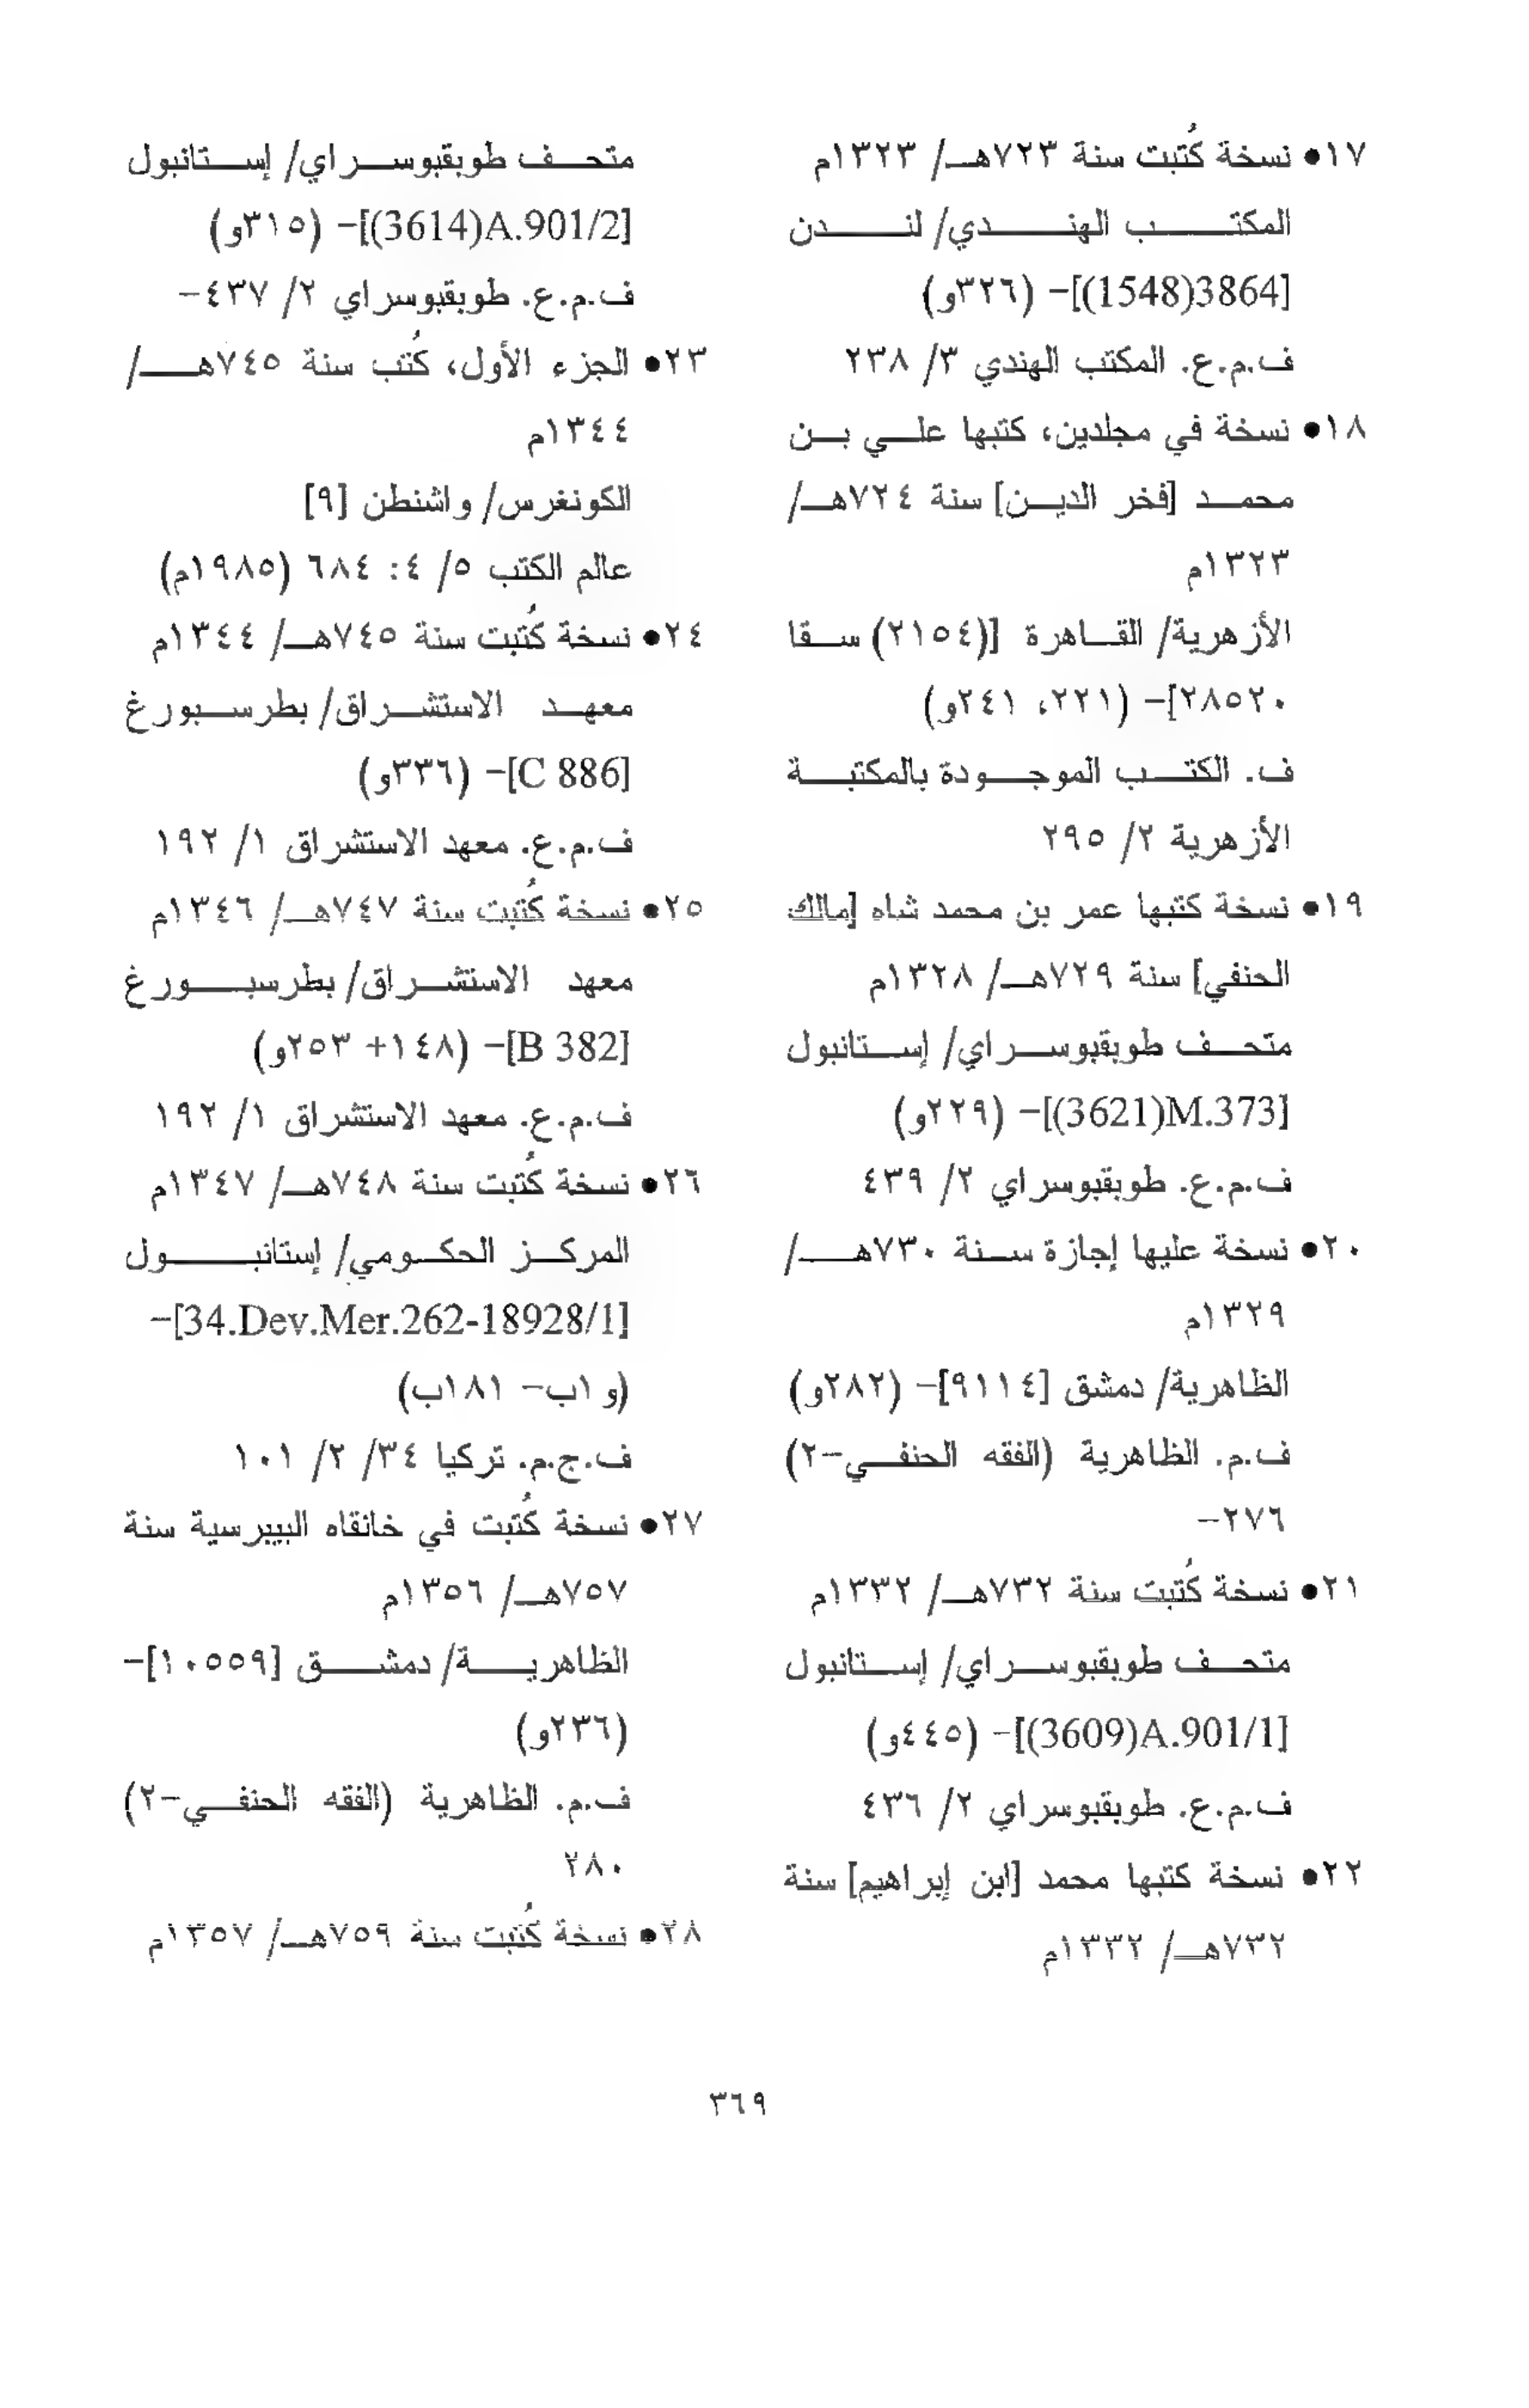 ١٧● نسخة كُتبت سنة ٧٢٣هـ/ ١٣٢٣م
المكتب الهندي/ لندن
[1548)3864)]- (٣٢٦و)
ف.م.ع. المكتب الهندي ٣/ ٢٣٨
١٨● نسخة في مجلدين، كتبها علي بن
محمد [فخر الدين] سنة ٧٢٤هـ/
١٣٢٣م
الأزهرية/ القاهرة [(٢١٥٤) سقا
٢٨٥٢٠]- (٢٢١، ٢٤١و)
ف. الكتب الموجودة بالمكتبة
الأزهرية ٢/ ٢٩٥
١٩● نسخة كتبها عمر بن محمد شاه [مالك
الحنفي] سنة ٧٢٩هـ/ ١٣٢٨م
متحف طوبقبوسراي/ إستانبول
[(3621)M.373]- (٢٢٩و)
ف.م.ع. طوبقبوسراي ٢/ ٤٣٩
٢٠● نسخة عليها إجازة سنة ٧٣٠هـ/
١٣٢٩م
الظاهرية/ دمشق [٩١١٤]- (٢٨٢و)
ف.م. الظاهرية (الفقه الحنفي-٢)
٢٧٦-
٢١● نسخة كُتبت سنة ٧٣٢هـ/ ١٣٣٢م
متحف طوبقبوسراي/ إستانبول
[(3609)A.901/1]- (٤٤٥و)
ف.م.ع. طوبقبوسراي ٢/ ٤٣٦
٢٢● نسخة كتبها محمد [ابن إبراهيم] سنة
٧٣٢هـ/ ١٣٣٢م
متحف طوبقبوسراي/ إستانبول
[(3614)A.901/2]- (٣١٥و)
ف.م.ع. طوبقبوسراي ٢/ ٤٣٧-
٢٣● الجزء الأول، كُتب سنة ٧٤٥هـ/
١٣٤٤م
الكونغرس/ واشنطن [٩]
عالم الكتب ٥/ ٤: ٦٨٤ (١٩٨٥م)
٢٤● نسخة كُتبت سنة ٧٤٥هـ/ ١٣٤٤م
معهد الاستشراق/ بطرسبورغ
[C 886]- (٣٣٦و)
ف.م.ع. معهد الاستشراق ١/ ١٩٢
٢٥● نسخة كُتبت سنة ٧٤٧هـ/ ١٣٤٦م
معهد الاستشراق/ بطرسبورغ
[B 382]- (١٤٨+ ٢٥٣و)
ف.م.ع. معهد الاستشراق ١/ ١٩٢
٢٦● نسخة كُتبت سنة ٧٤٨هـ/ ١٣٤٧م
المركز الحكومي/ إستانبول
[34.Dev.Mer.262-18928/1]-
(و ١ب- ١٨١ب)
ف.ج.م. تركيا ٣٤/ ٢/ ١٠١
٢٧● نسخة كُتبت في خانقاه البيبرسية سنة
٧٥٧هـ/ ١٣٥٦م
الظاهرية/ دمشق [١٠٥٥٩]-
(٢٣٦و)
ف.م. الظاهرية (الفقه الحنفي-٢)
٢٨٠
٢٨● نسخة كُتبت سنة ٧٥٩هـ/ ١٣٥٧م
٣٦٩